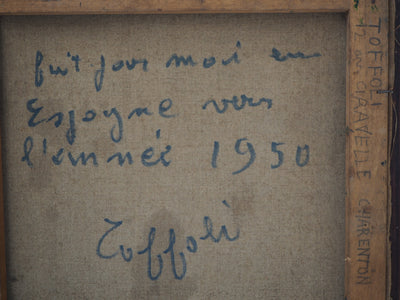 fait par moi en
Espagne vers
l'année 1950
Toffoli
TOFFOLI
GRAVELLE CHARENTON